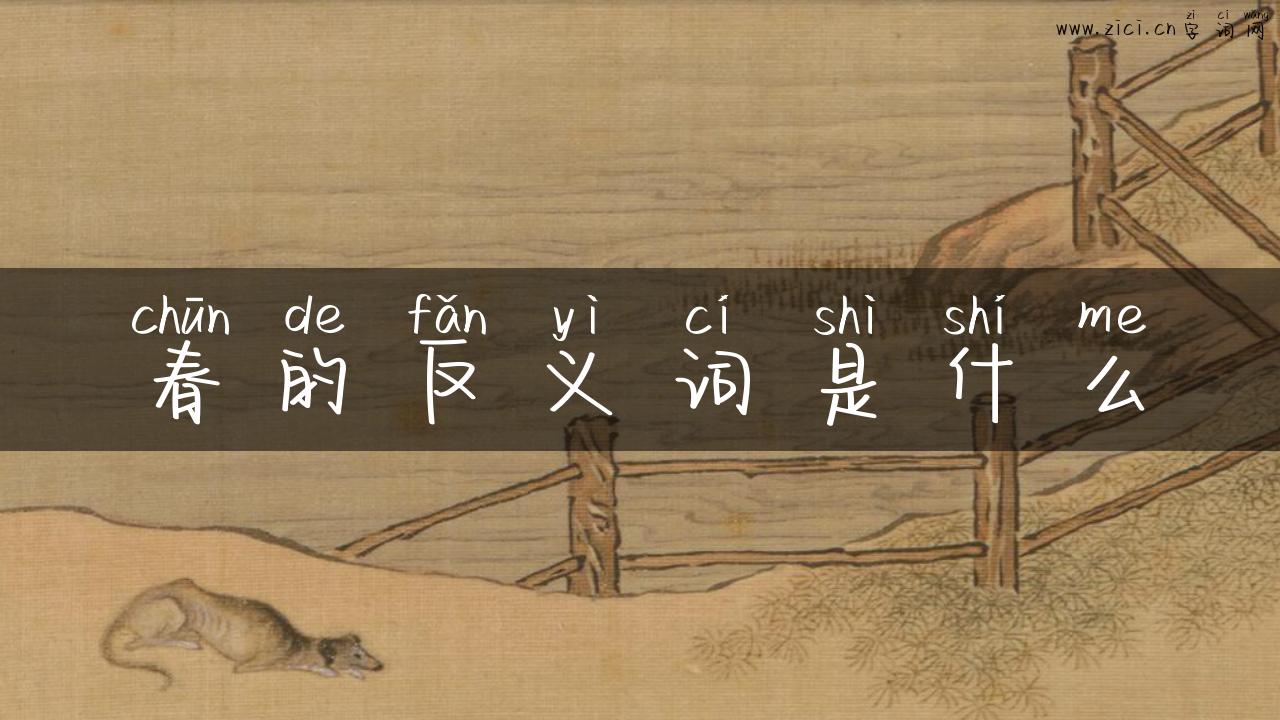 zi ci wang
www.zici.cn字词网
chūn de fǎn yì cí shì shí me
春的反义词是什么